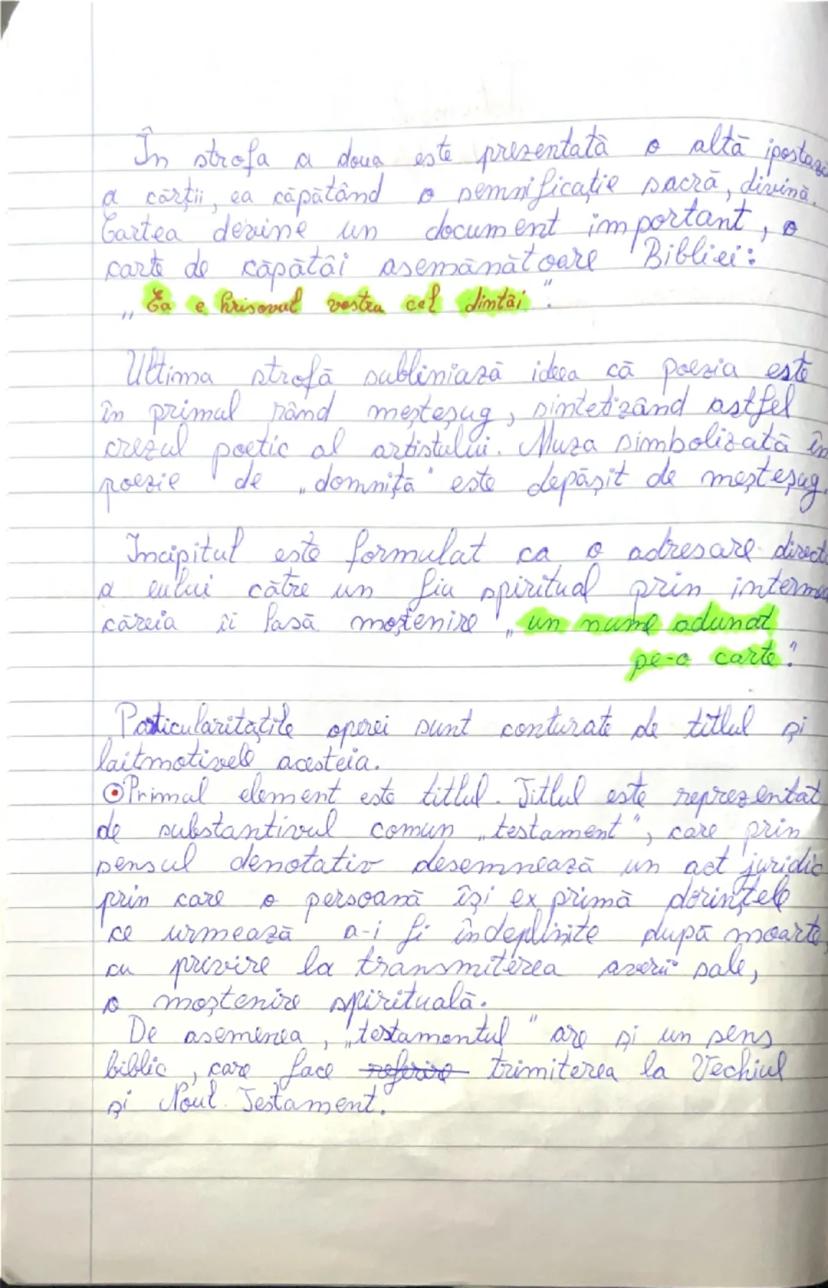 În strofa a doua este prezentată o altă ipostază
a cărții, ea căpătând o semnificație sacră, divină.
Cartea devine un document important, o
carte de căpătâi asemănătoare Bibliei:
„Ea e hrisovul vostru cel dintâi".
Ultima strofă subliniază ideea că poezia este
în primul rând meșteșug, sintetizând astfel
crezul poetic al artistului. Muza simbolizată în
poezie de „domniță" este depășit de meșteșug.
Incipitul este formulat ca o adresare directă
a eului către un fiu spiritual prin interme
căreia îi lasă moștenire „un nume adunat
pe-o carte".
Particularitățile operei sunt conturate de titlul și
laitmotivele acesteia.
Primul element este titlul. Titlul este reprezentat
de substantivul comun „testament", care prin
sensul denotativ desemnează un act juridic
prin care o persoană își exprimă dorințele
ce urmează a-i fi îndeplinite după moarte,
cu privire la transmiterea averii sale,
o moștenire spirituală.
De asemenea, „testamentul" are și un sens
biblic, care face referire trimiterea la Vechiul
și Noul Testament.